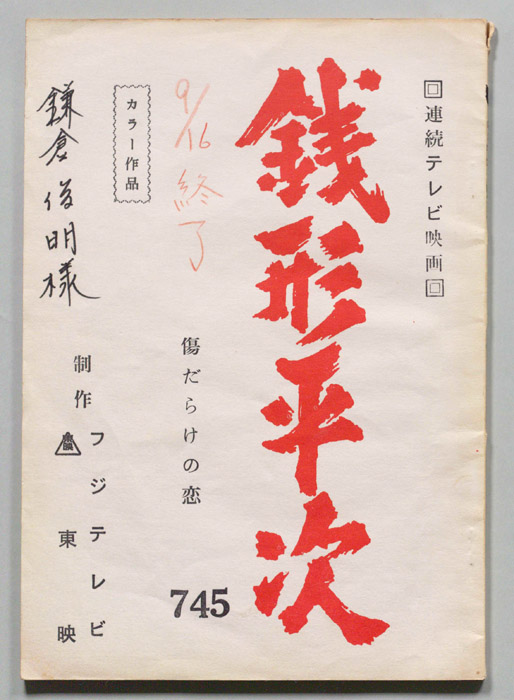 回連続テレビ映画回
銭形平次
傷だらけの恋
745
9/16 終了
カラー作品
鎌倉俊明様
制作
フジテレビ
東映